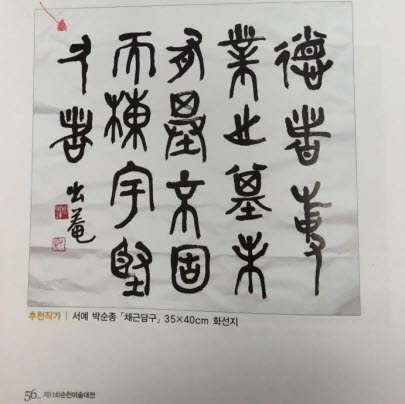 德者事
業之基未
有基不固
而棟宇堅
久者
菴
추천작가 | 서예 박순종 「채근담구」 35×40cm 화선지
56_ 제11회순천미술대전